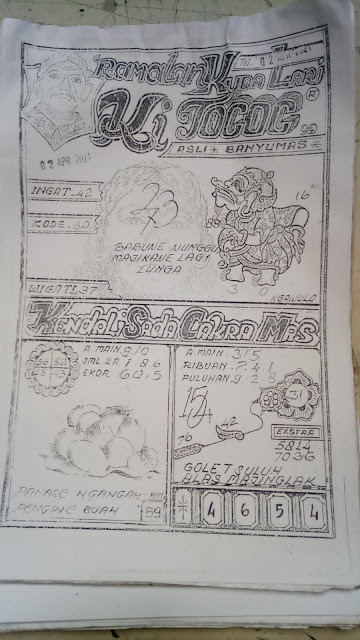 RAMALAN KUDA LARI
Ki TOGOG ®
02 APR 2021
ASLI * BANYUMAS *
INGAT.42
23
16
KODE.80
89
BABUNE NUNGGU
MAJIKANE LAGI
LUNGA
WIGATI.97
3 0
NGAWULO
KENDALI SADA CAKRA MAS
A.MAIN.9/0
JML 2A 7.8.6
EKOR 6.0.5
A.MAIN.3/5
RIBUAN.7.4.1
PULUHAN.9.2.8
31
42
76
EXSTRA
5814
7036
GOLET SULUH
ALAS MAJINGLAK
PANASE NGANGAH-
PENGINE BUAH
59
4 6 5 4